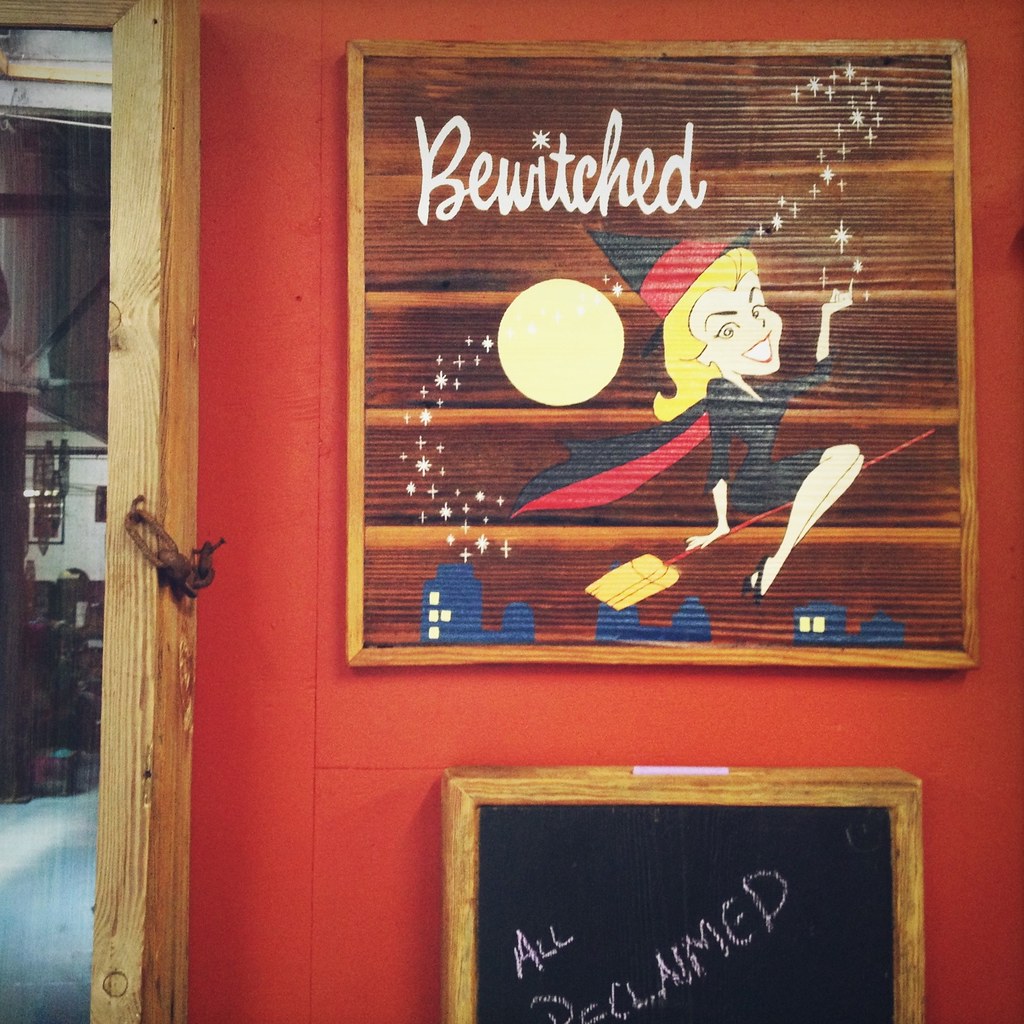 Bewitched
ALL
RECLAIMED